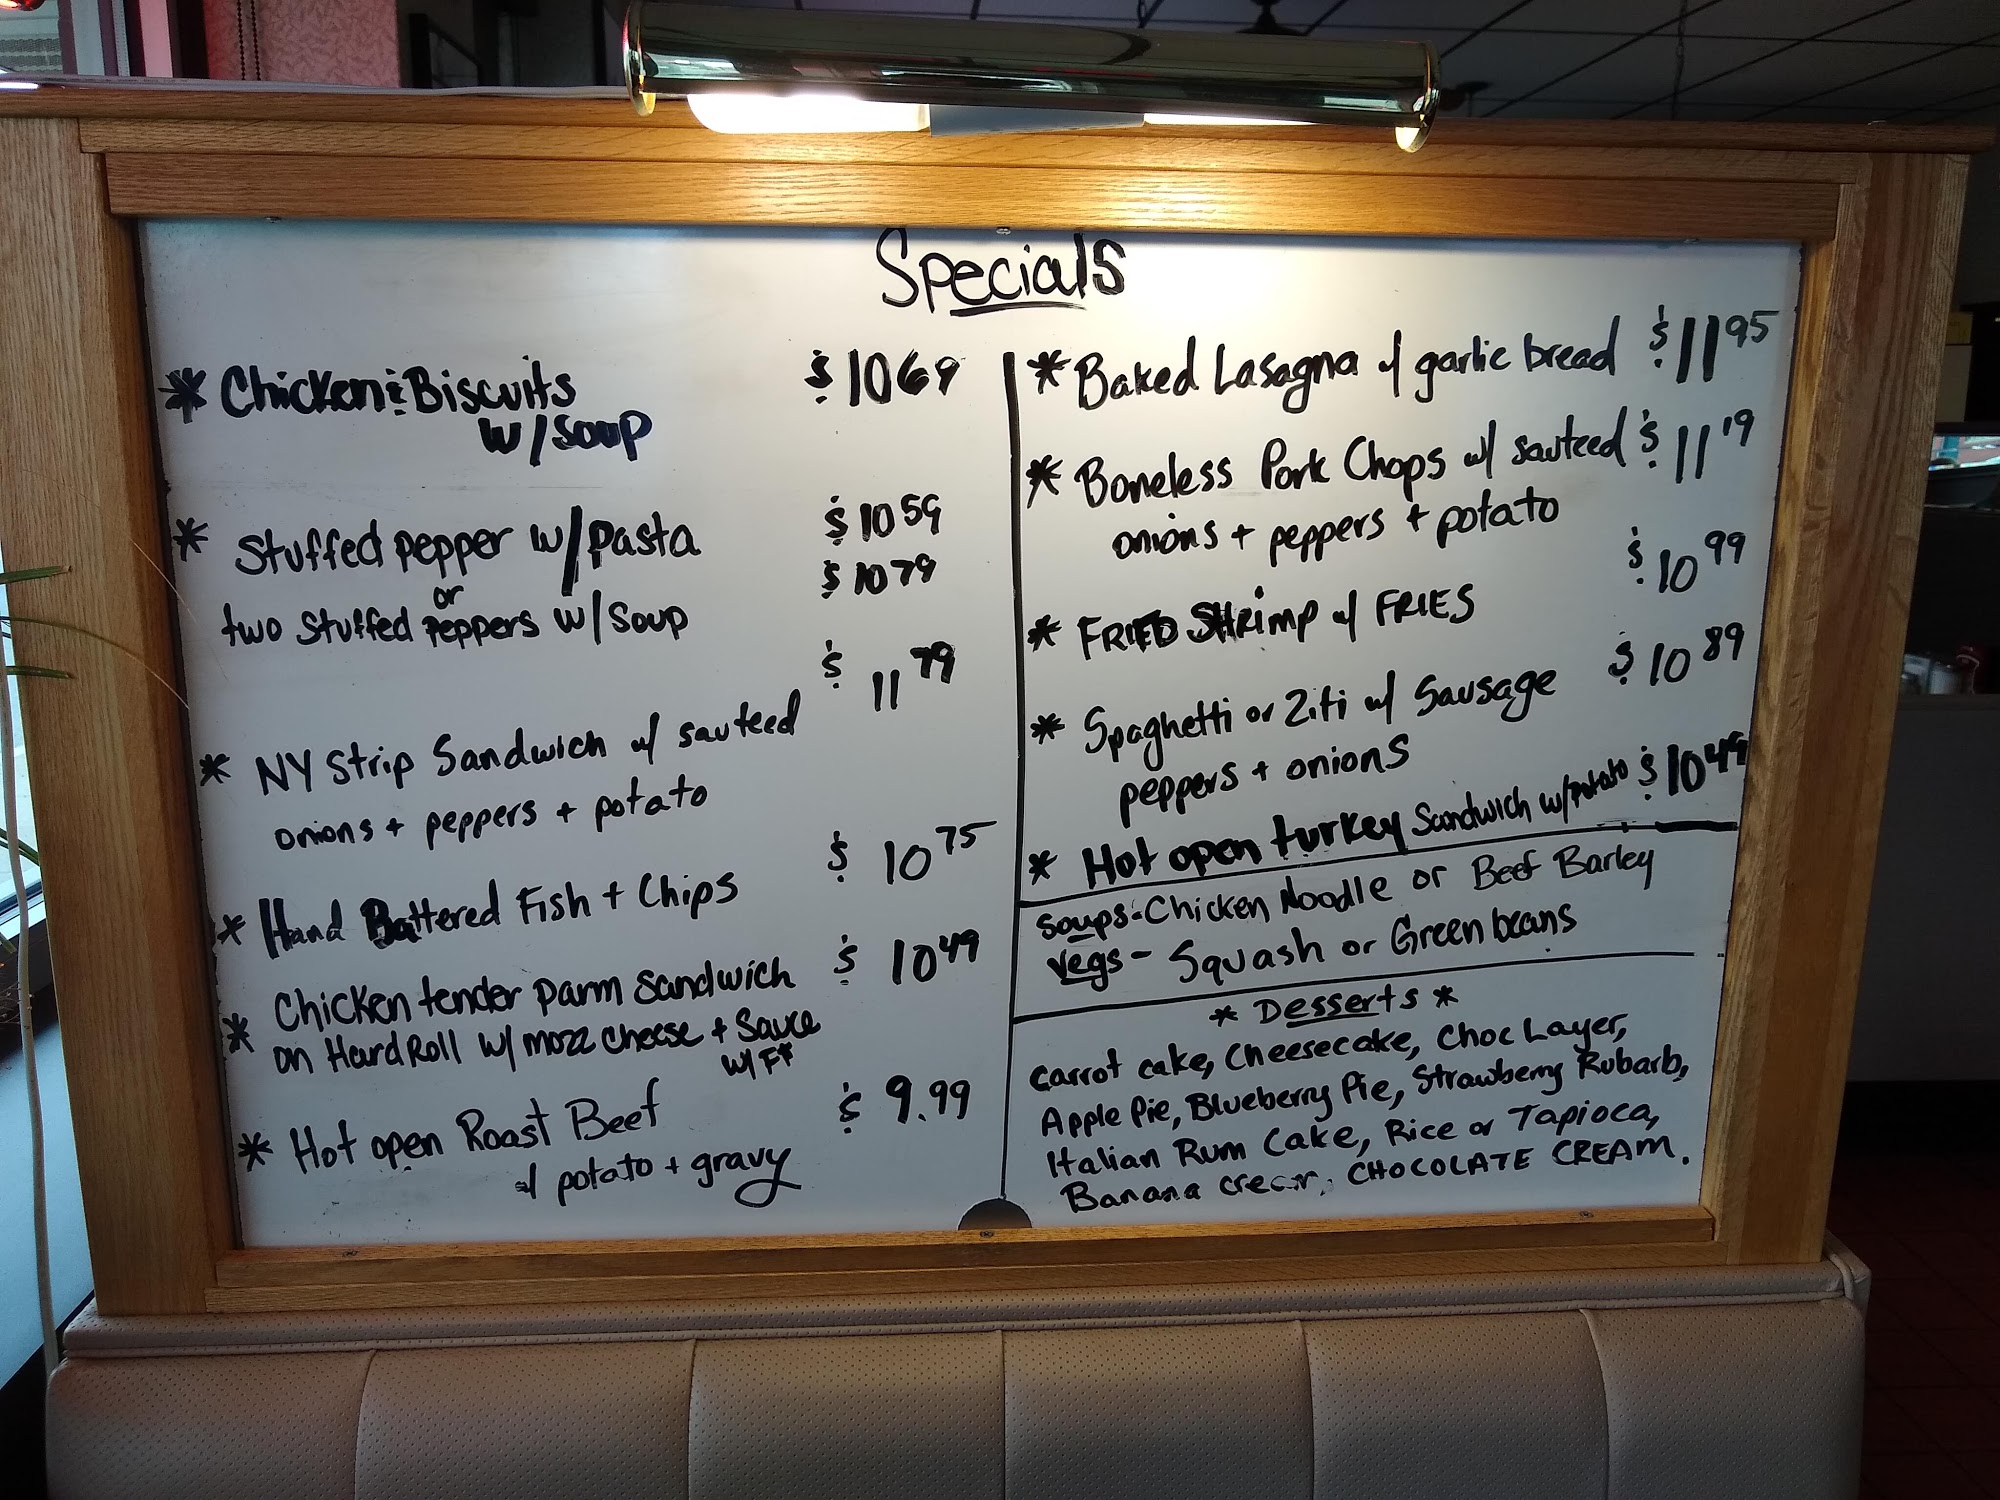 Specials
* Chicken & Biscuits $10 69
w/soup
* Stuffed pepper w/pasta $10 59
or
two stuffed peppers w/soup $10 79
* NY Strip Sandwich w/ sauteed $11 79
onions + peppers + potato
* Hand Battered Fish + Chips $10 75
* Chicken tender parm sandwich $10 49
on Hard Roll w/ mozz cheese + Sauce
w/ FF
* Hot open Roast Beef $9.99
w/ potato + gravy
* Baked Lasagna w/ garlic bread $11 95
* Boneless Pork Chops w/ sauteed $11 19
onions + peppers + potato
* FRIED SHRimp w/ FRIES $10 99
* Spaghetti or Ziti w/ Sausage $10 89
peppers + onions
* Hot open turkey Sandwich w/potato $10 49
Soups - Chicken Noodle or Beef Barley
Vegs - Squash or Green beans
* Desserts *
Carrot cake, Cheesecake, Choc Layer,
Apple Pie, Blueberry Pie, Strawberry Rubarb,
Italian Rum Cake, Rice or Tapioca,
Banana cream, CHOCOLATE CREAM.